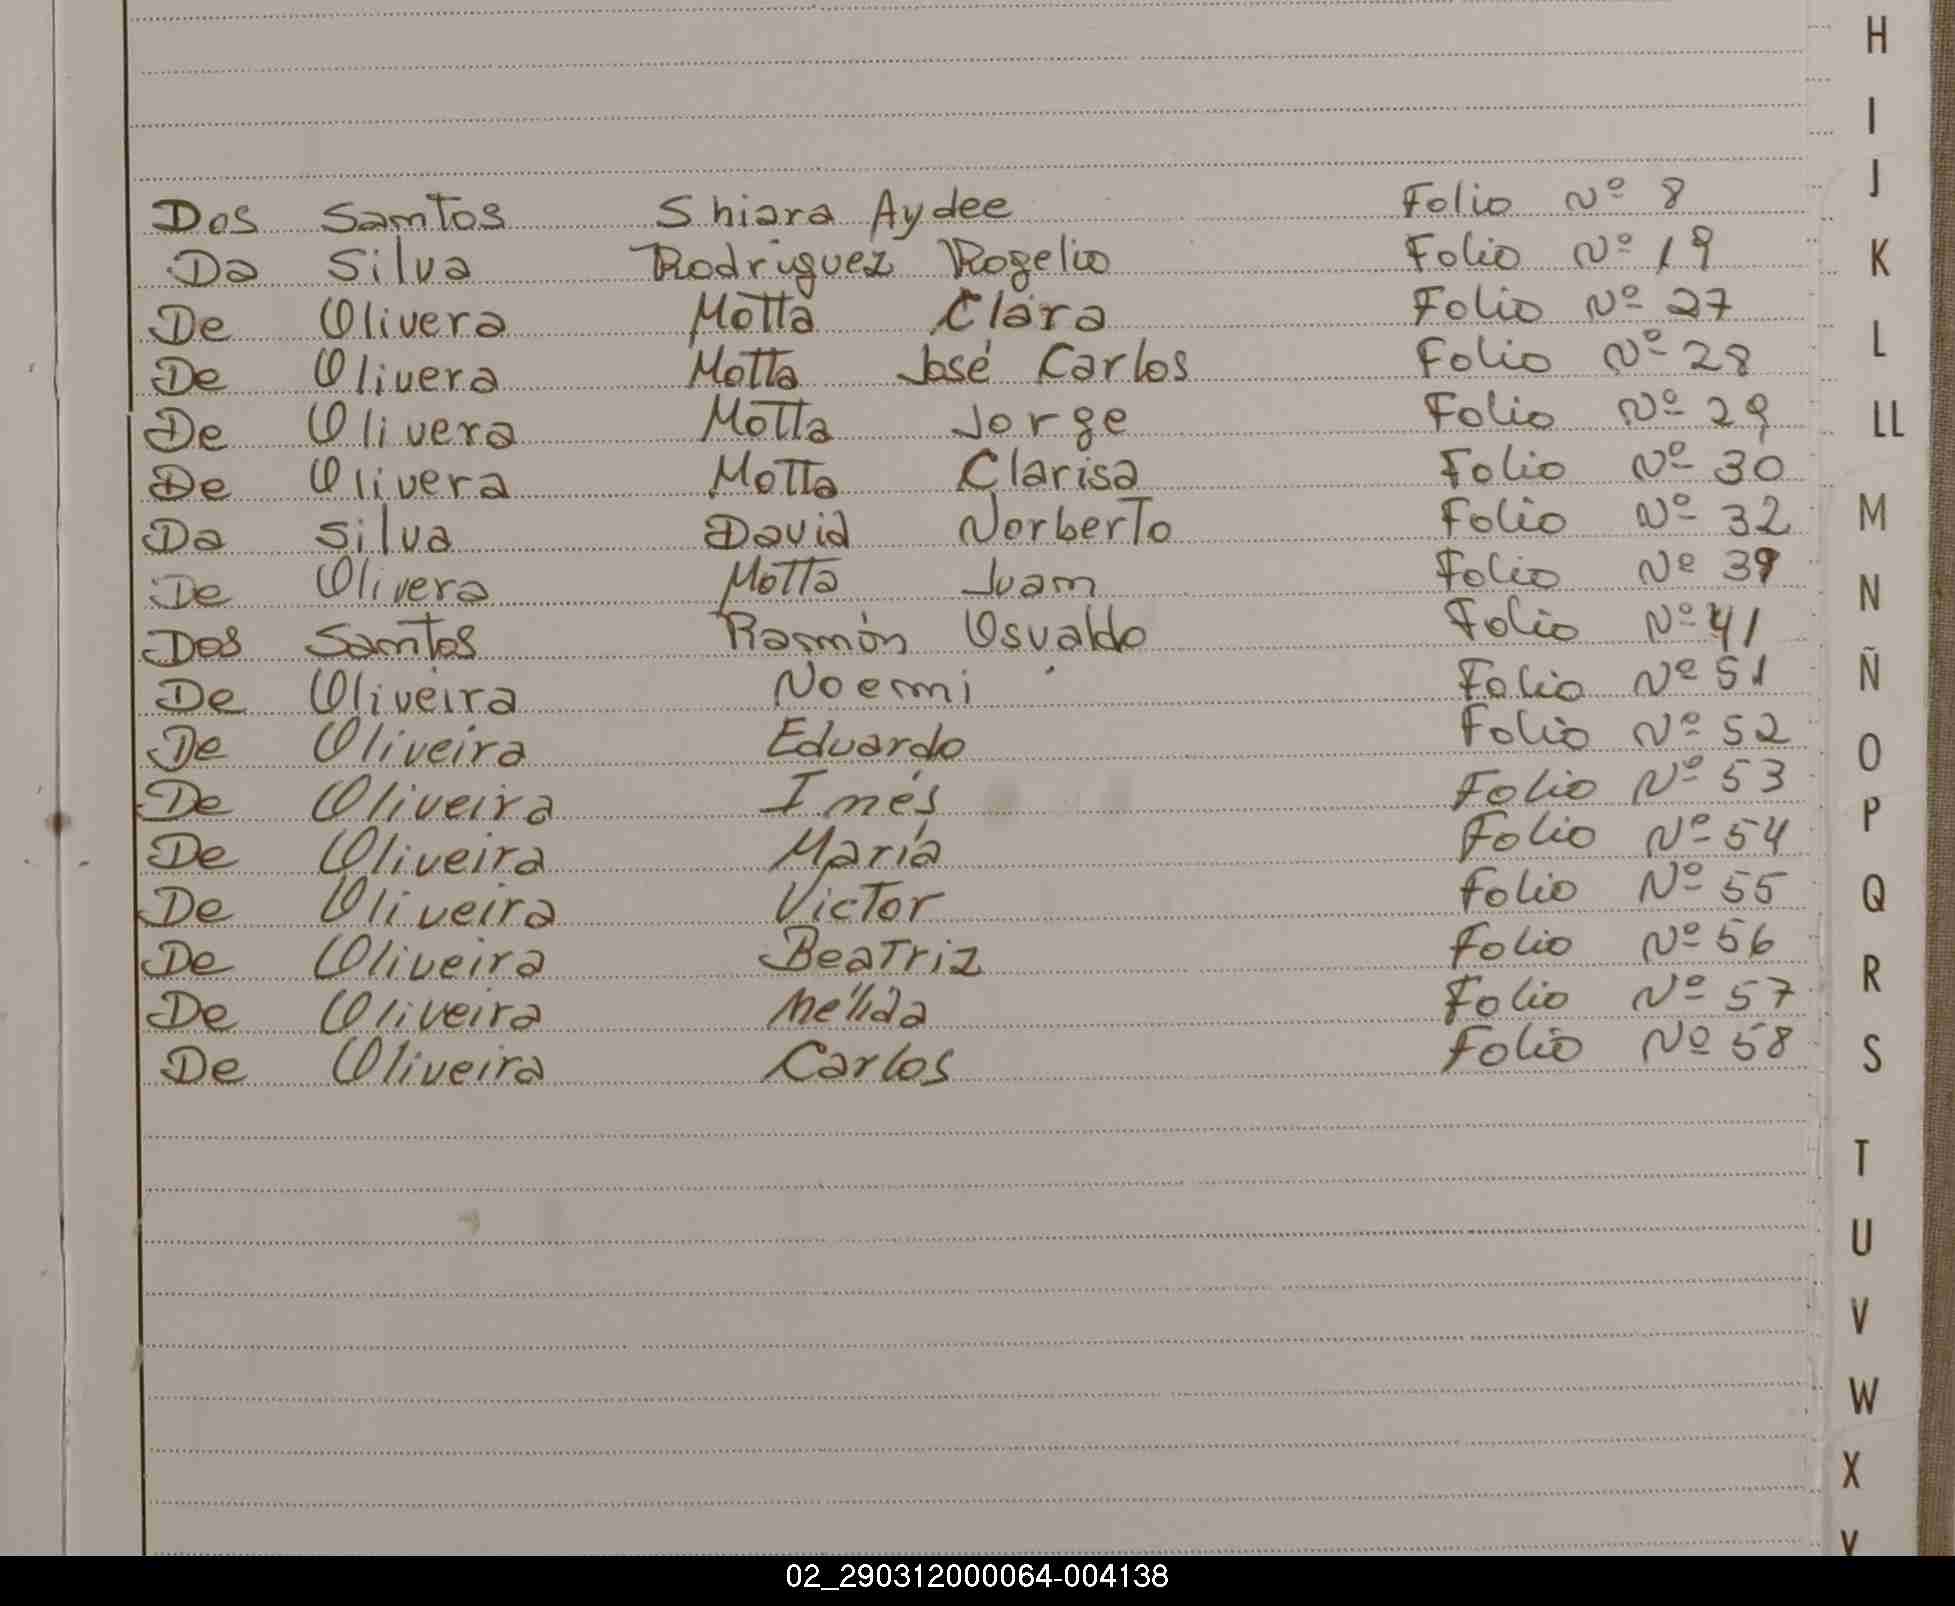 Dos Santos Shiara Aydee Folio Nº 8
Da Silva Rodriguez Rogelio Folio Nº 19
De Olivera Motta Clara Folio Nº 27
De Olivera Motta José Carlos Folio Nº 28
De Olivera Motta Jorge Folio Nº 29
De Olivera Motta Clarisa Folio Nº 30
Da Silva David Norberto Folio Nº 32
De Olivera Motta Juan Folio Nº 39
Dos Santos Ramón Osvaldo Folio Nº 41
De Oliveira Noemi Folio Nº 51
De Oliveira Eduardo Folio Nº 52
De Oliveira Inés Folio Nº 53
De Oliveira María Folio Nº 54
De Oliveira Victor Folio Nº 55
De Oliveira Beatriz Folio Nº 56
De Oliveira Nélida Folio Nº 57
De Oliveira Carlos Folio Nº 58
H
I
J
K
L
LL
M
N
Ñ
O
P
Q
R
S
T
U
V
W
X
Y
02_290312000064-004138